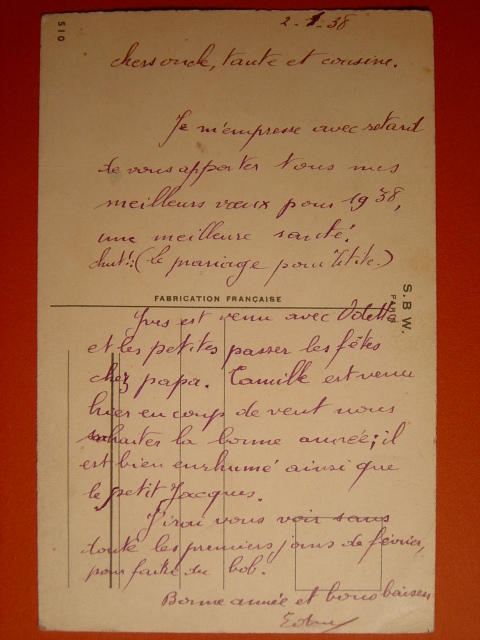 510
2-1-38
chers oncle, tante et cousine.
Je m'empresse avec retard
de vous apporter tous mes
meilleurs vœux pour 1938,
une meilleure santé.
chut!:(le mariage pour Titite.)
FABRICATION FRANÇAISE
S.B.W.
PARIS
Yves est venu avec Odette
et les petites passer les fêtes
chez papa. Camille est venu
hier en coup de vent nous
souhaiter la bonne année; il
est bien enrhumé ainsi que
le petit Jacques.
J'irai vous voir sans
doute les premiers jours de février,
pour faire du bob.
Bonne année et bons baisers